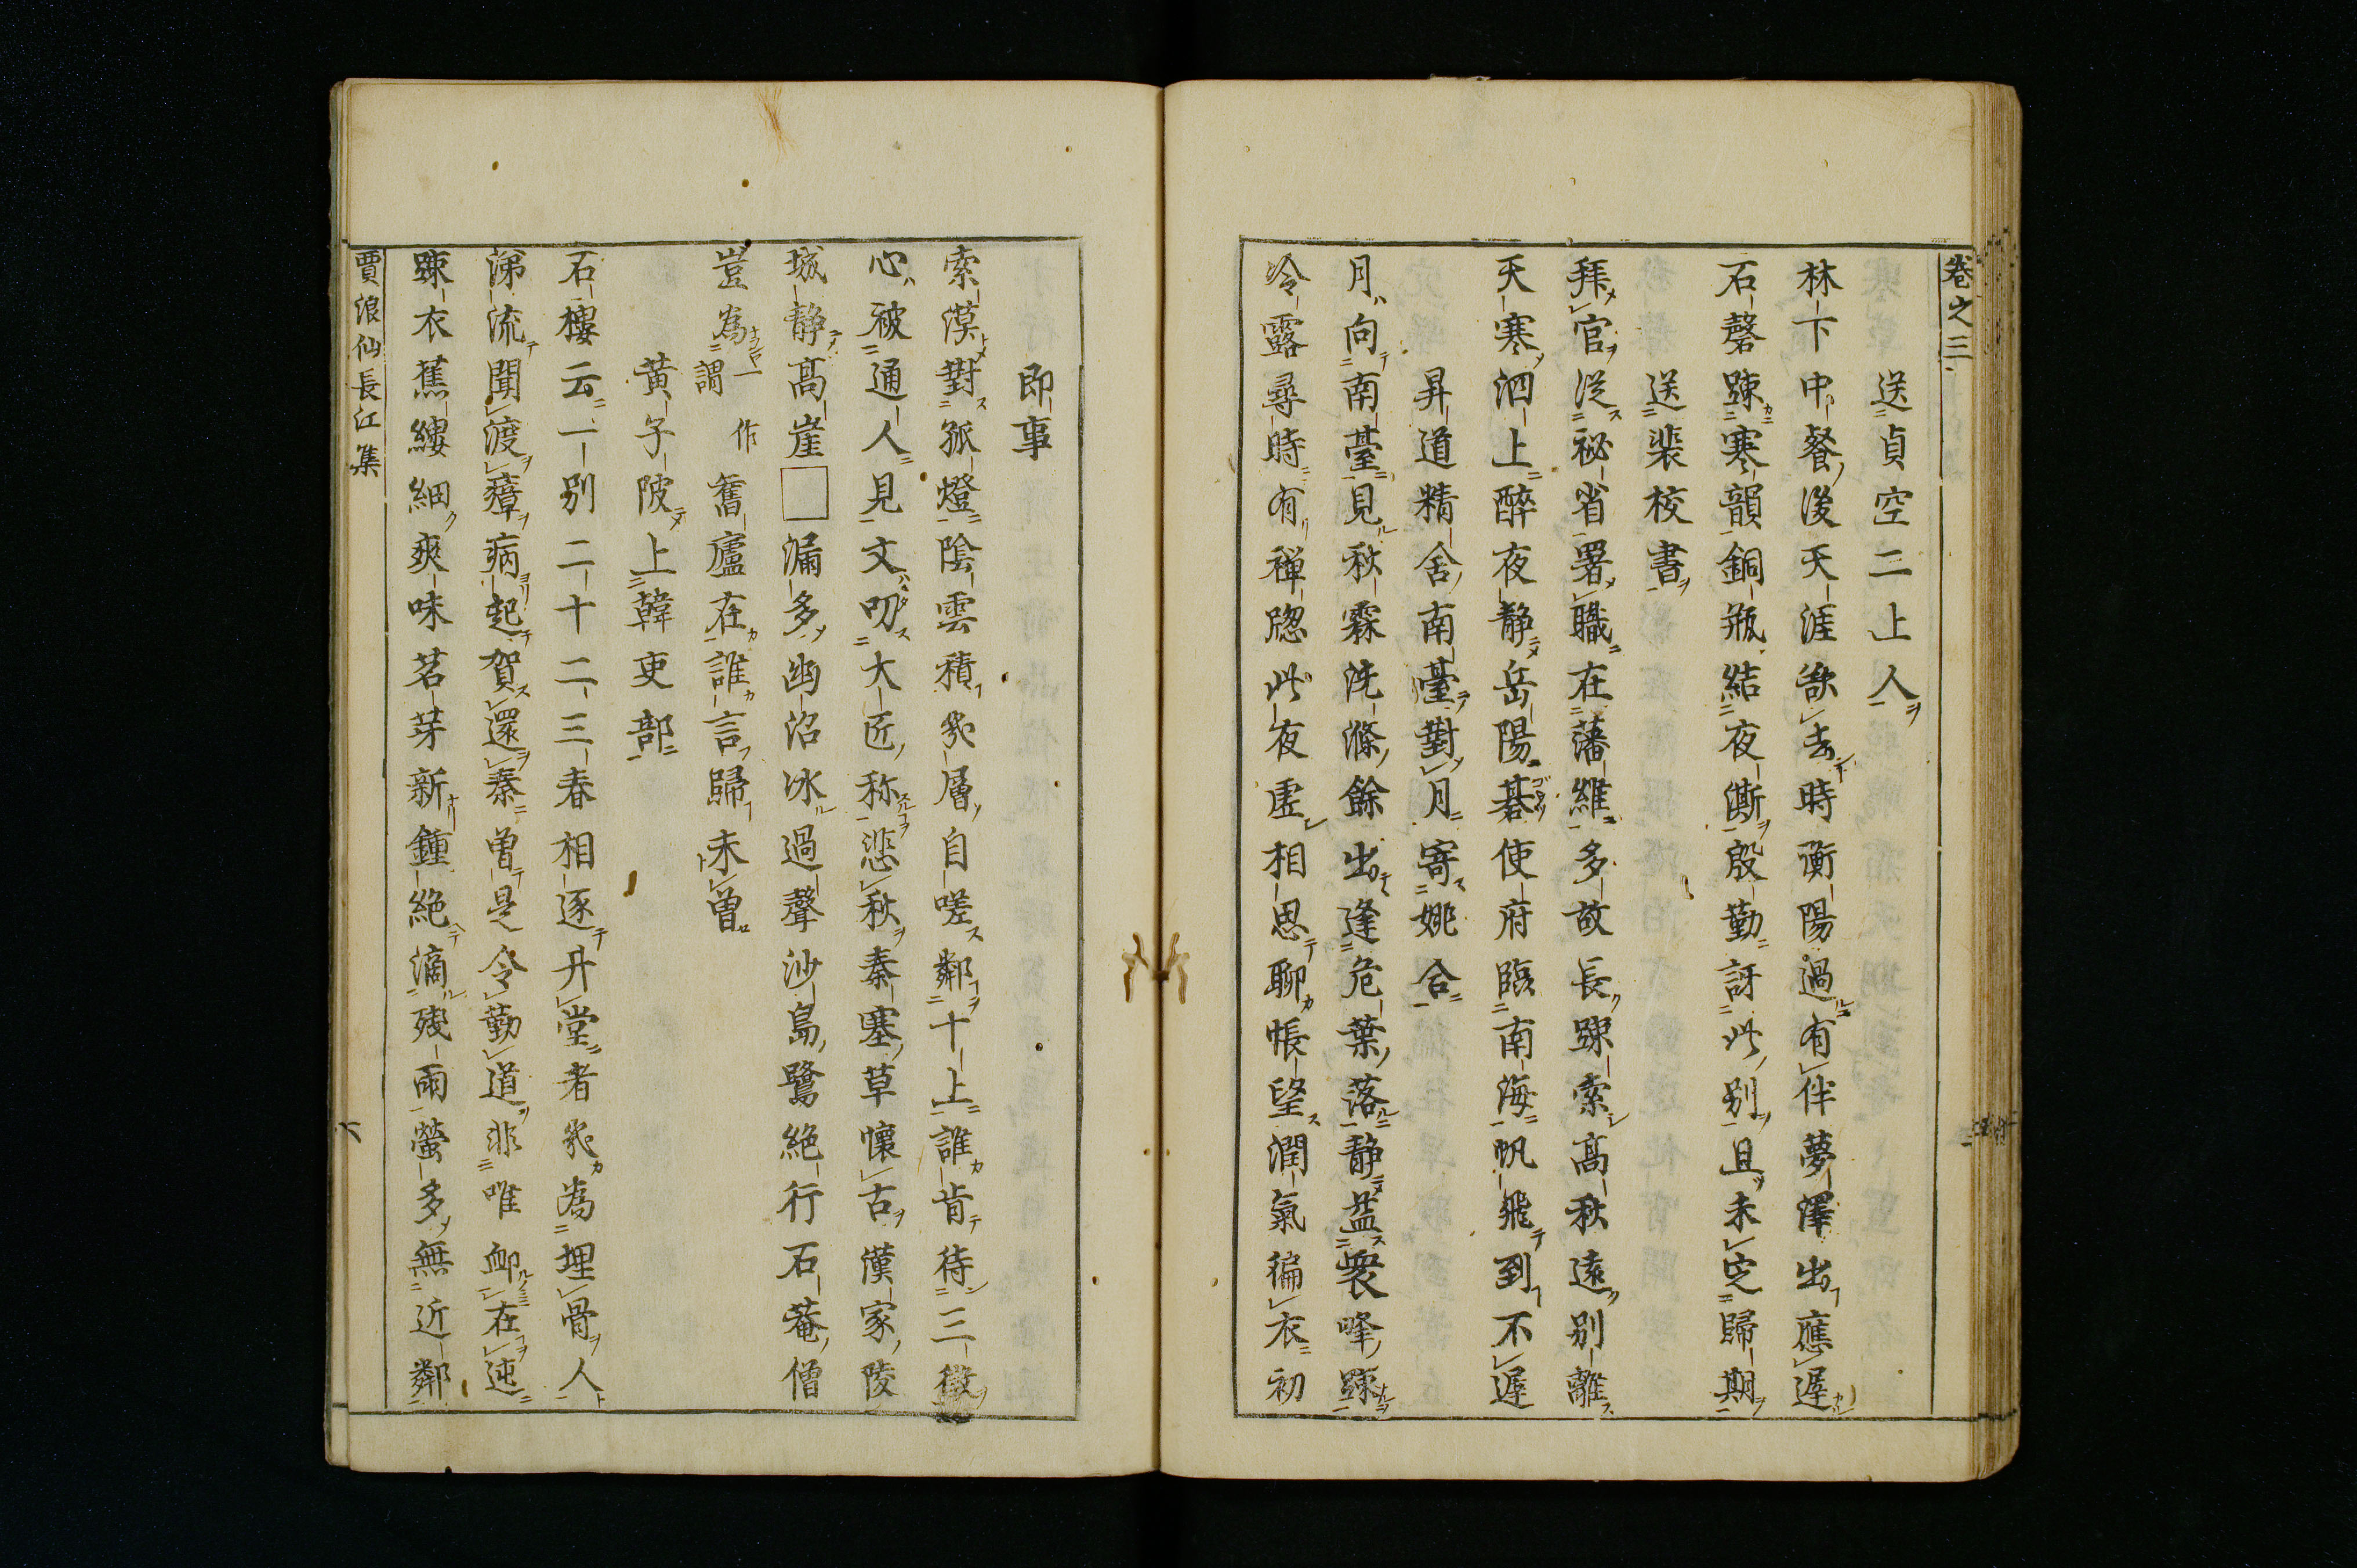 卷之三
送貞空二上人
林下中餐後天涯欲去時衡陽過有伴夢澤出應遲
石磬疎寒韻銅瓶結夜澌殷勤訝此別且未定歸期
送裴校書
拜官從祕省署職在藩維多故長疎索高秋遠別離
天寒泗上醉夜靜岳陽碁使府臨南海帆飛到不遲
昇道精舍南臺對月寄姚合
月向南臺見秋霖洗滌餘出逢危葉落靜益衆峰疎
冷露尋時有禪牕此夜虛相思聊悵望潤氣徧衣初
即事
索漠對孤燈陰雲積幾層自嗟鄰十上誰肯待三徵
心被通人見文叨大匠称悲秋秦塞草懷古漢家陵
城靜高崖□漏多幽沼冰過聲沙島鷺絕行石菴僧
豈為一作謂舊廬在誰言歸未曾
黃子陂上韓吏部
石樓云一別二十二三春相逐升堂者幾為埋骨人
涕流聞渡瘴病起賀還秦曾是令勤道非唯卹在迍
疎衣蕉縷細爽味茗芽新鐘絕滴殘雨螢多無近鄰
賈浪仙長江集
六